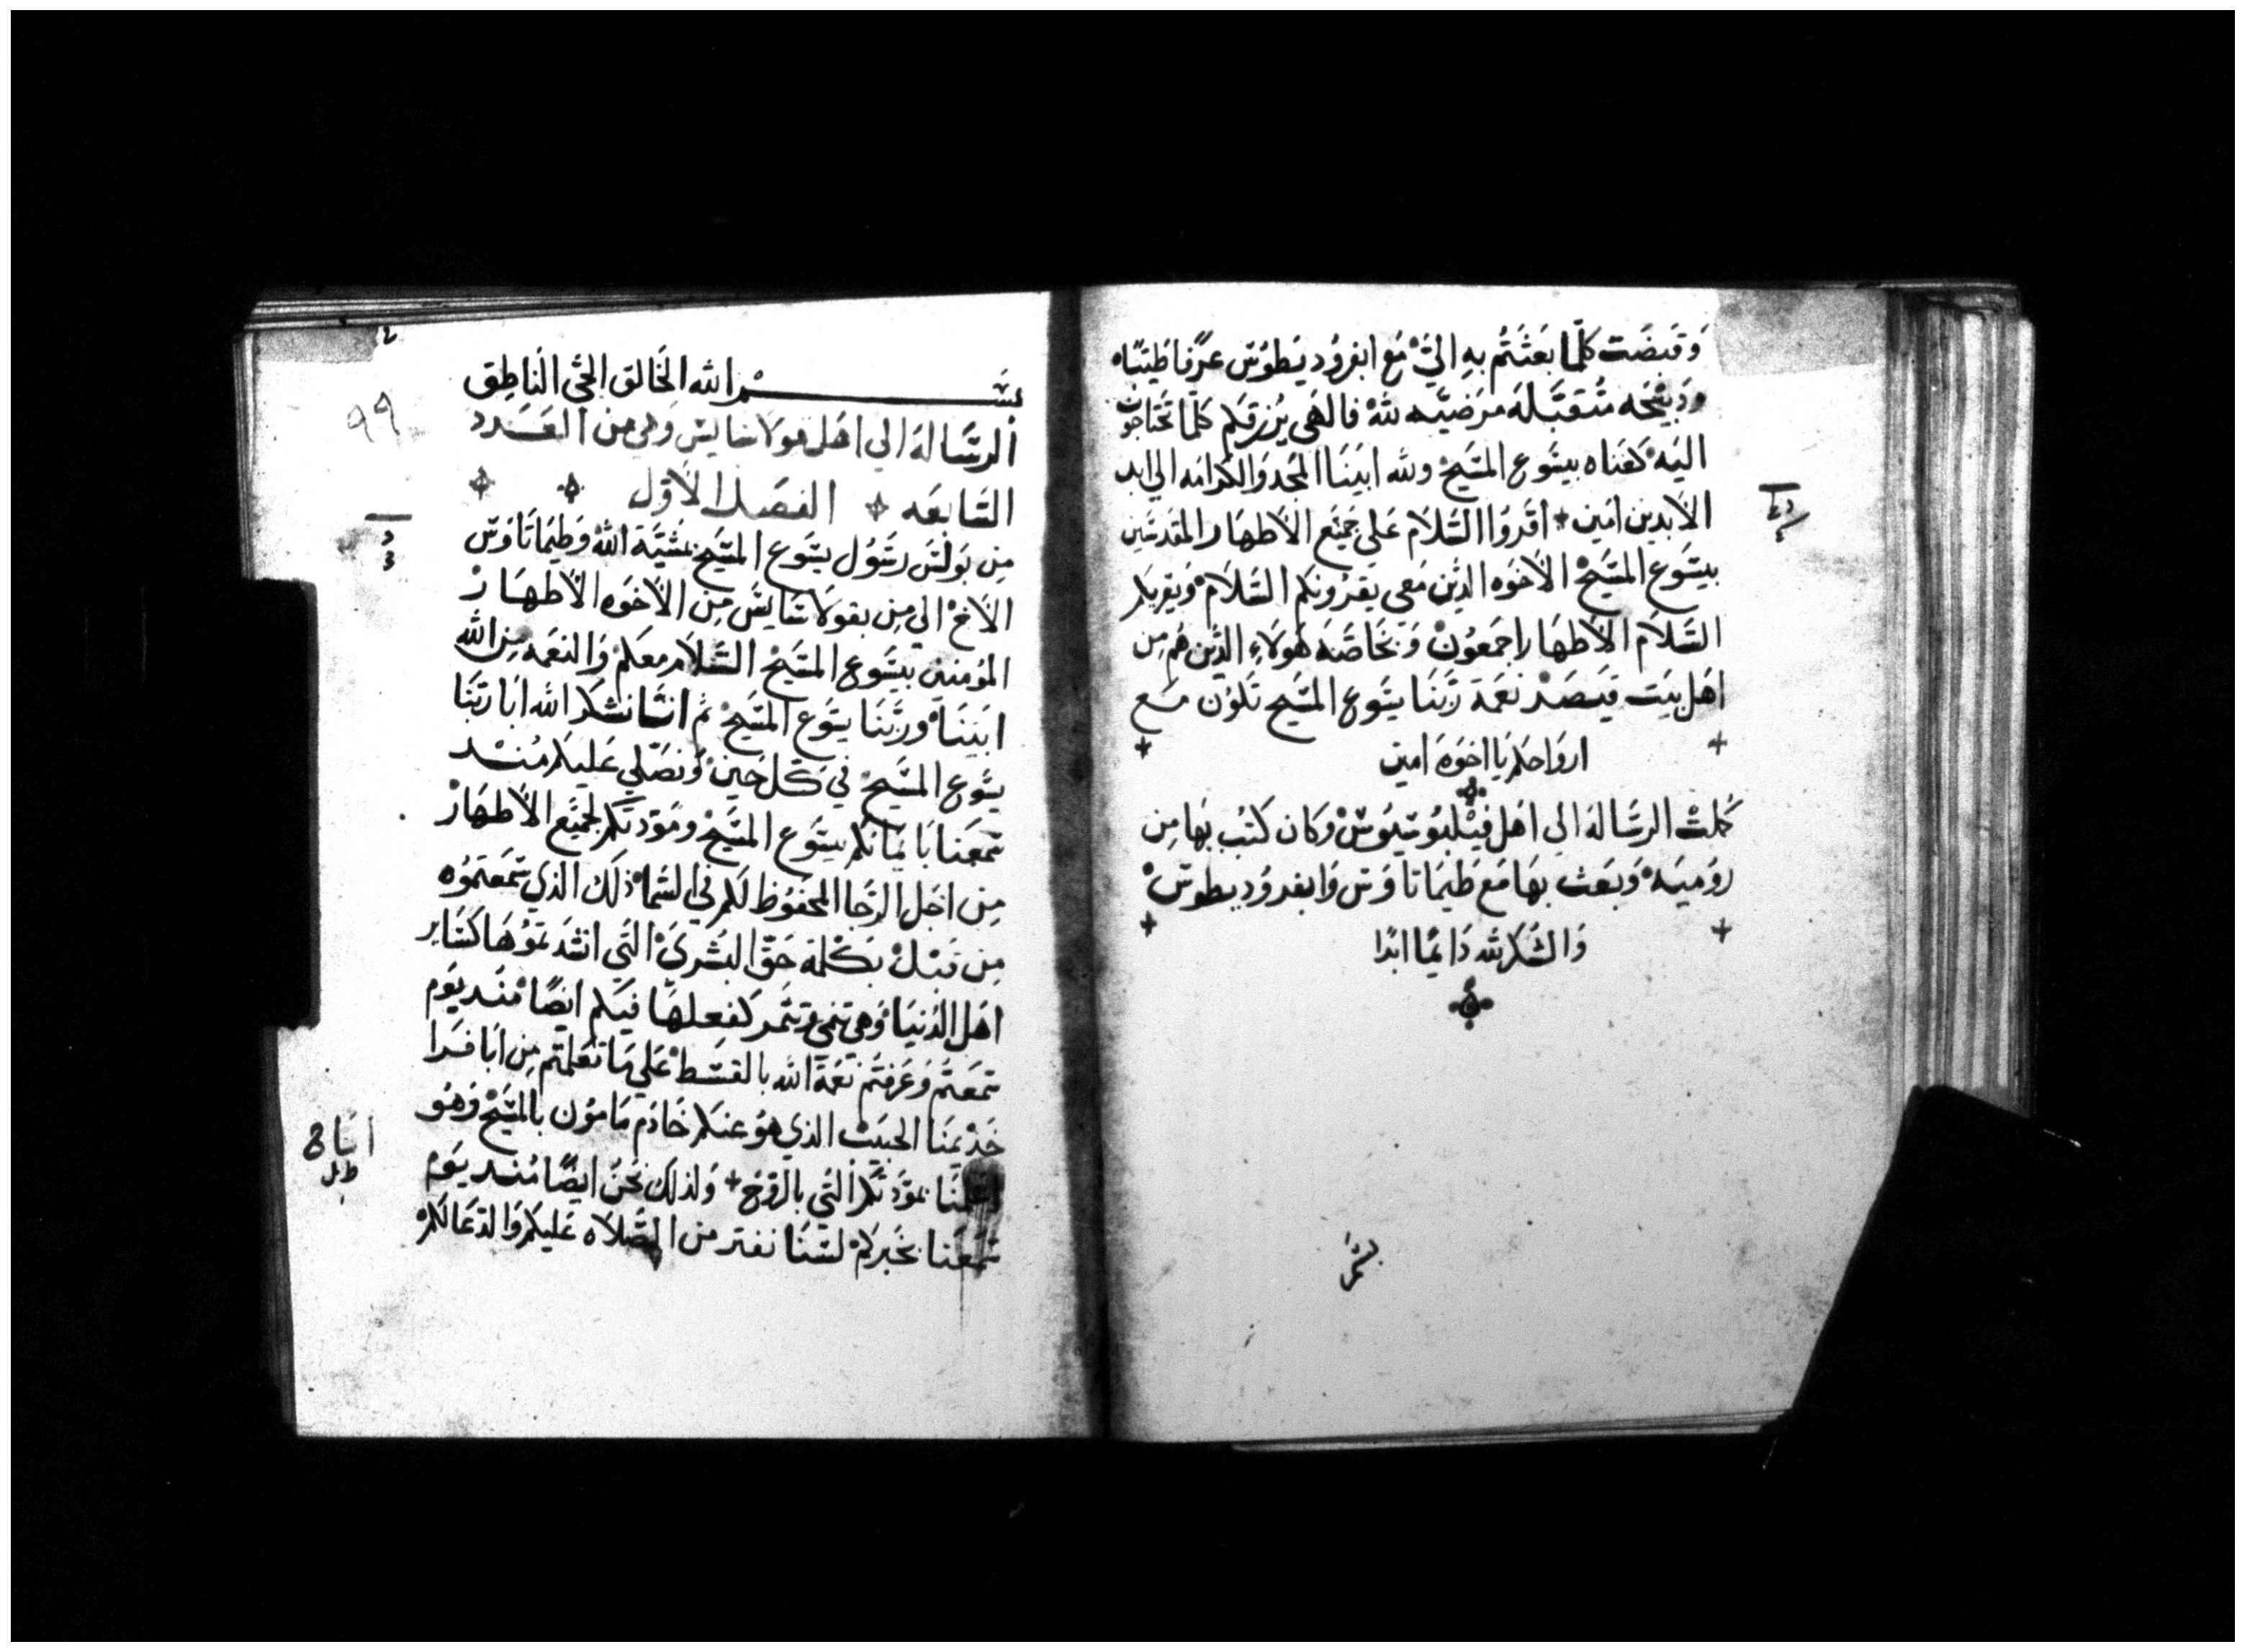 وَقَبضَت كلّما بعَثتُم بهِ اليَّ مَع ابفرُوديطوُسَ عرًفا طَيّبًاه
وذبيْحَه مُتقبّلَة مرَضيّه للهْ فالهَي يُرزقكم كلّما تحتَاجوُن
اليَه كغناه بيسُوع المسَيحْ ولله ابيَنا المجَد وَالكرامَه الي ابد
الابدين امَين + اقروُا السَّلام عَلي جَميْع الاطهَار المقدسَين
بيسَوع المسَيحْ الاخوَه الذيَن مَعي يقروُنكم السَّلامْ وَيقريكم
السَّلام الاطهَار اجمَعوُنْ وَبخاصَّه هَولاءِ الذيَن هُم مِن
اهَل بيَت قيَصَر نعمَة ربّنَا يسَوع المسَيح تكوُن مَع
+ اروَاحكم يَا اخوَة امَين +
كملتْ الرسَّالة الي اهَل فيْلبوُسيَوسْ وَكان كتبُ بهَا مِن
روُميَه وَبعَث بهَا مَع طيمَاتاوَس وَابفروُديطوسْ
+ وَالشكر لله دَايمًا ابدًا +
بسَم
99
بســـــــم الله الخَالق الحَي النَاطِق
الرسَّالة الي اهَل قولاسَايسَ وَهي مِن العَــدد
السَّابعَه + الفصَل الاوّل
مِن بَولسَ رسَوُل يسَوع المسَيح بمشيَّة اللهْ وَطيمَاتاوَسْ
الاخْ الي مِن بقولاسَايسَ مِن الاخوَه الاطهَـارْ
الموُمنيَن بيسَوع المسَيحْ السَّلام معَكمْ وَالنعمَه مِن الله
ابيَنَا ورَبّنَا يسَوع المسَيحْ ثم انَنا نشكر الله ابَا ربّنَا
يسَوع المسَيح في كل حَينْ وَنصَلّي عَليكم مُنــد
سَمعَنا بايمانكم بيسَوع المسَيحْ ومَوَدتكم لجميَع الاطهَارْ
مِن اجَل الرَجا المحفوُظ لكم في السَّماْ ذلَك الذي سَمعَتموُه
مِن قبَـلْ بكلمَة حَقّ البُشرَي التَي انتَدبموُهَا كسَاير
اهَل الدُنيَا وَهي تنمي وَتثمَر كفعلهَا فيَكم ايضًا مُنــد يوَم
سَمعَتُم وَعَرفتُم نعمَة الله بالقسَطْ عَلي مَا تعَلمتم مِن ابافـرا
خديمَنا الحبيَبْ الذي هوُ عنكم خَادَم مَاموُن بالمسَيحْ وَهوُ
اعلمَنا بموَدّتكم التي بالروُحْ + وَلذلك نحَن ايضًا مُنــد يوَم
سَمعَنا بخَبركمْ لسَنَا نفتر من الصَّلاه عَليكم وَالدعَا لكمْ